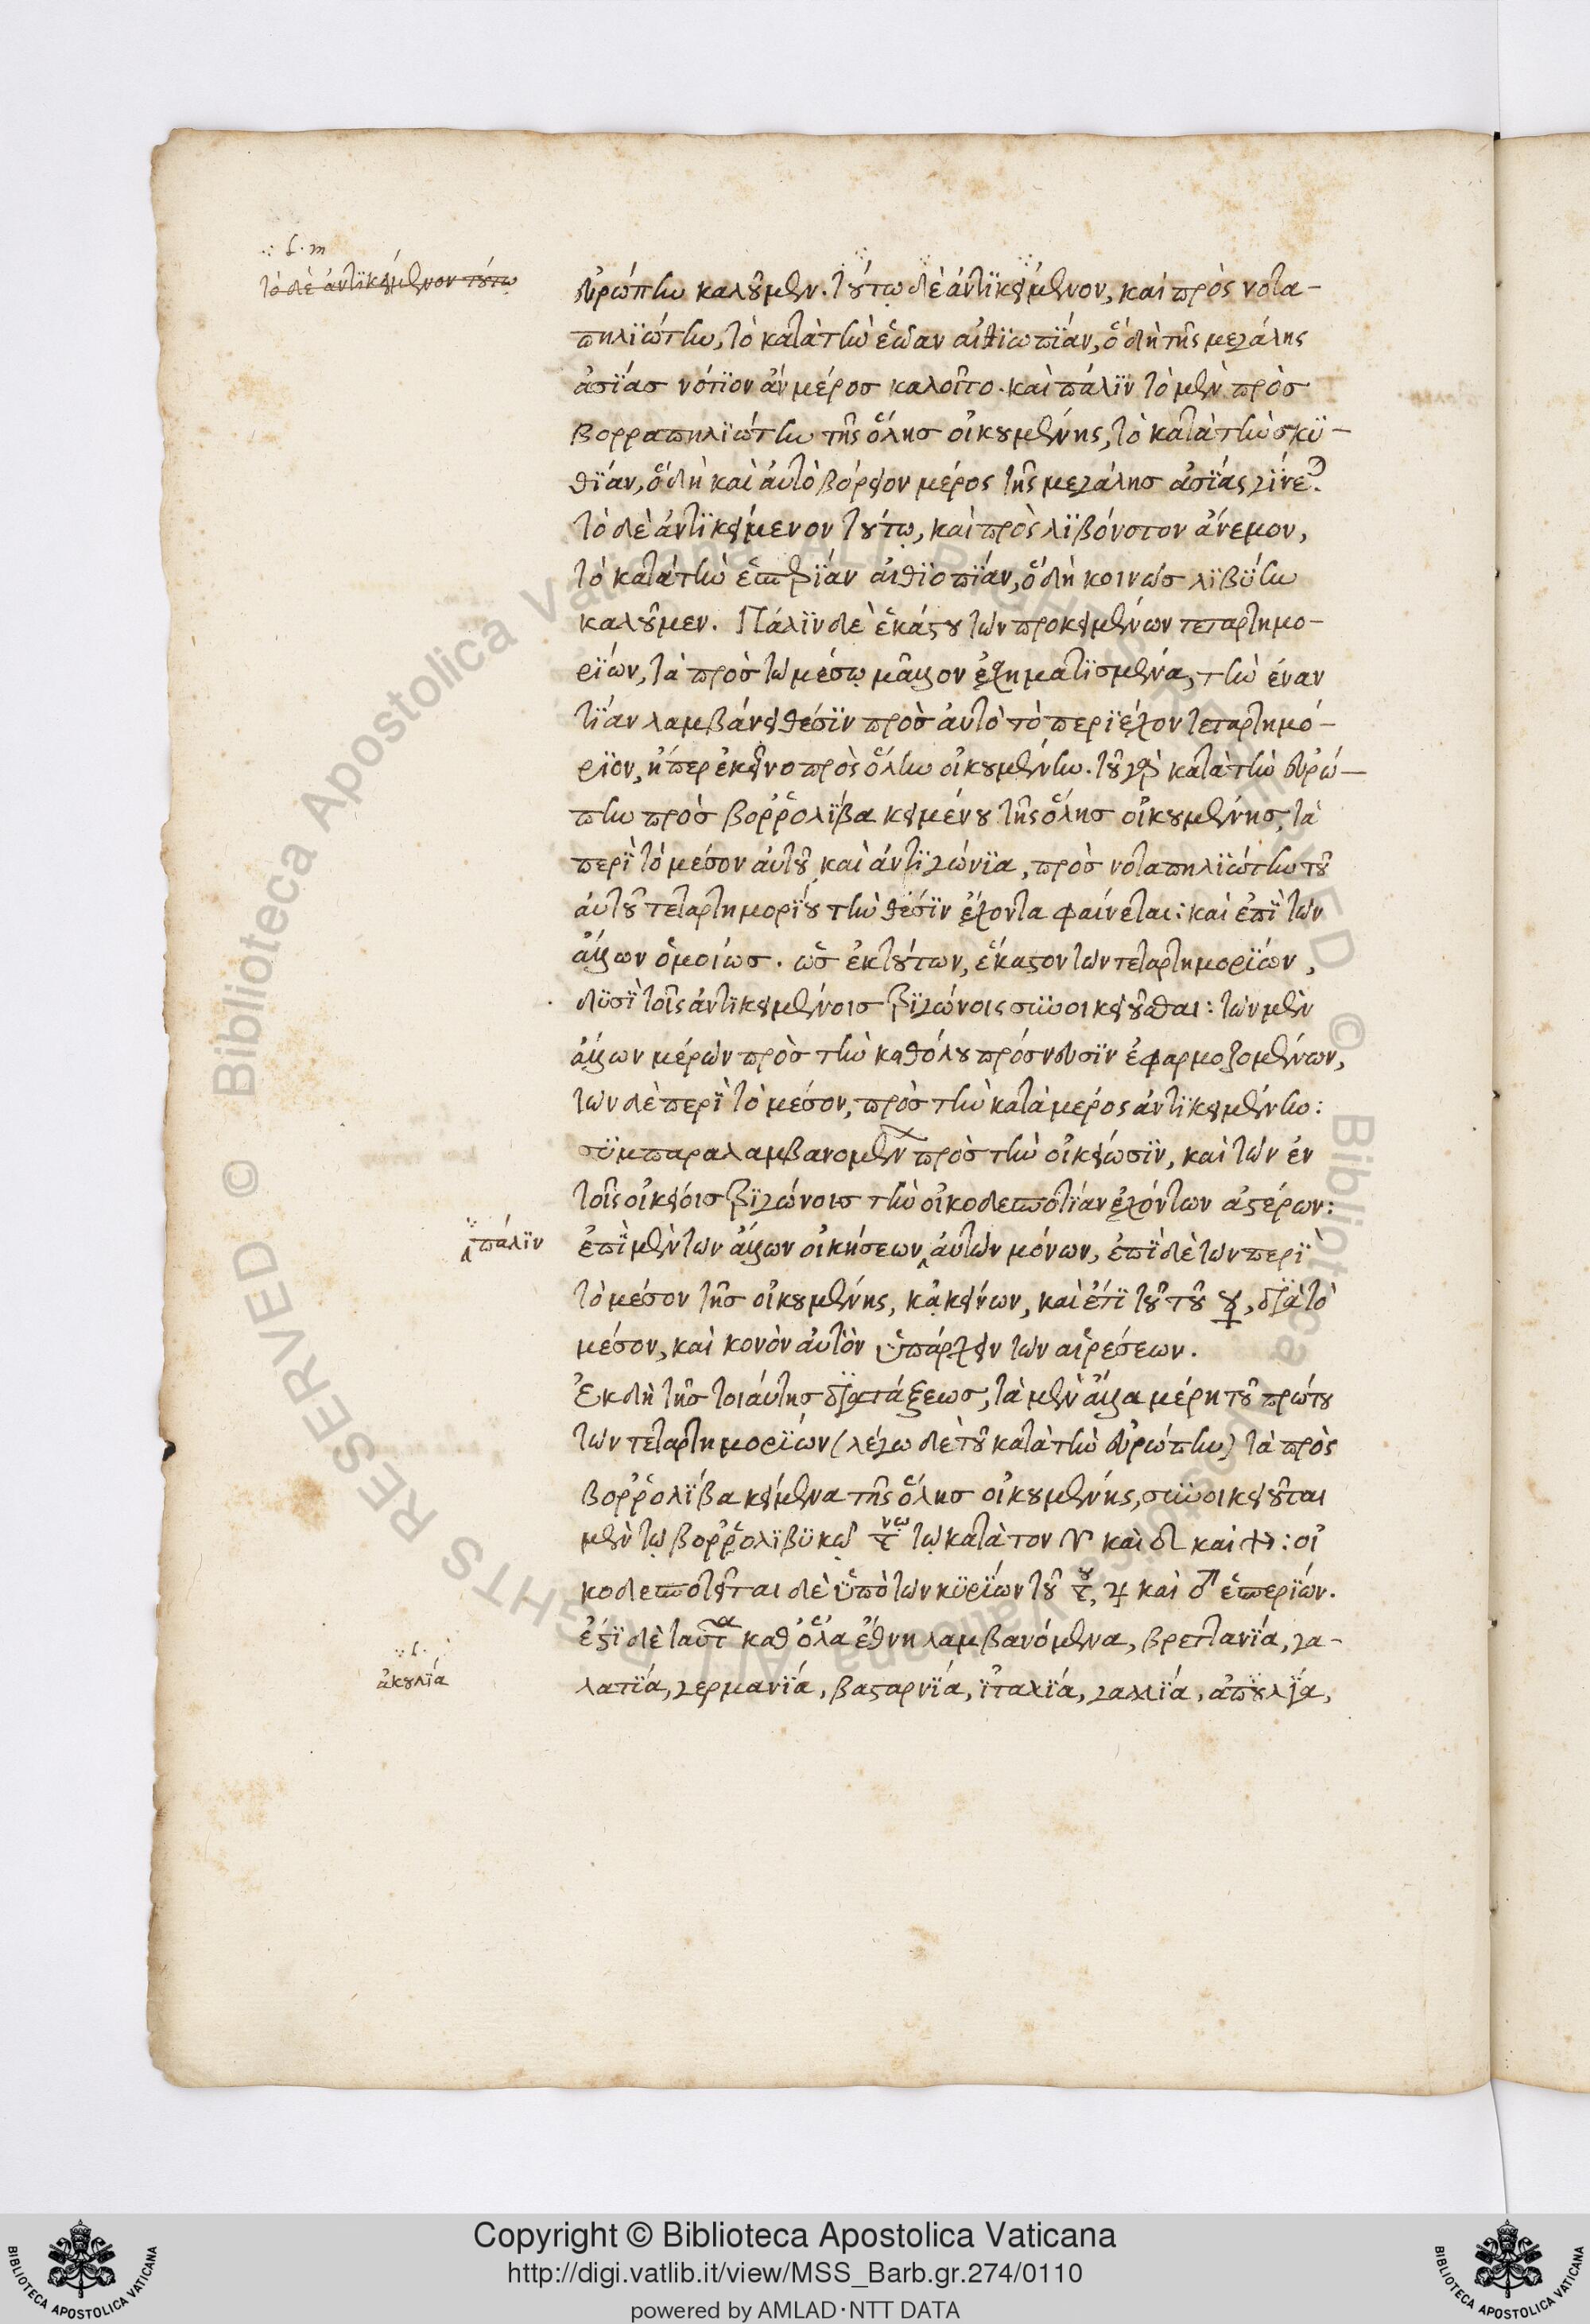 ∴ ſ. m
τὸ δὲ ἀντϊκείμενον τούτῳ
εὐρώπην καλοῦμεν. τούτῳ δὲ ἀντϊκείμενον, καὶ πρὸς νοτα-
πηλϊώτην, τὸ κατὰ τὴν ἑῴαν αἰθϊωπΐαν, ὃ δὴ τῆς μεγάλης
ἀσΐας νότϊον ἂν μέροσ καλοῖτο. καὶ πάλϊν τὸ μὲν πρὸσ
βορραπηλϊώτην τῆς ὅλησ οἰκουμένης, τὸ κατὰ τὴν σκϋ-
θΐαν, ὃ δὴ καὶ ἀυτὸ βόρειον μέρος τῆς μεγάλησ ἀσΐας γΐνεται.
τὸ δὲ ἀντϊκείμενον τούτῳ, καὶ πρὸς λϊβόνοτον ἄνεμον,
τὸ κατὰ τὴν ἑσπερΐαν αἰθϊοπΐαν, ὃ δὴ κοινῶσ λϊβΰην
καλοῦμεν. Πάλϊν δὲ ἑκάστου τῶν προκειμένων τεταρτημο-
ρΐων, τὰ πρὸσ τῷ μέσῳ μᾶλλον ἐσχηματϊσμένα, τὴν ἐναν
τΐαν λαμβάνει θέσϊν πρὸσ ἀυτὸ τὸ περϊέχον τεταρτημό-
ρϊον, ἥπερ ἐκεῖνο πρὸς ὅλην οἰκουμένην. τοῦ γὰρ κατὰ τὴν εὐρώ-
πην πρὸσ βορρολΐβα κειμένου τῆς ὅλησ οἰκουμένησ, τὰ
περὶ τὸ μέσον ἀυτοῦ καὶ ἀντϊγώνϊα, πρὸσ νοταπηλϊώτην τοῦ
ἀυτοῦ τεταρτημορΐου τὴν θέσϊν ἔχοντα φαίνεται: καὶ ἐπὶ τῶν
ἄλλων ὁμοίωσ. ὡσ ἐκ τούτων, ἕκαστον τῶν τεταρτημορΐων,
δϋσὶ τοῖς ἀντϊκειμένοισ τρϊγώνοις συνοικειοῦσθαι: τῶν μὲν
ἄλλων μερῶν πρὸσ τὴν καθόλου πρόσνευσϊν ἐφαρμοζομένων,
τῶν δὲ περὶ τὸ μέσον, πρὸσ τὴν κατὰ μέρος ἀντϊκειμένην:
σϋμπαραλαμβανομένων πρὸσ τὴν οἰκείωσϊν, καὶ τῶν ἐν
τοῖς οἰκείοισ τρϊγώνοισ τὴν οἰκοδεσποτΐαν ἐχόντων ἀστέρων:
πάλϊν
ἐπὶ μὲν τῶν ἄλλων οἰκήσεων ἀυτῶν μόνων, ἐπὶ δὲ τῶν περὶ
τὸ μέσον τῆσ οἰκουμένης, κἀκείνων, καὶ ἔτϊ τοῦ τοῦ ☿, δϊὰ τὸ
μέσον, καὶ κονὸν ἀυτὸν ὑπάρχειν τῶν αἱρέσεων.
Ἐκ δὴ τῆσ τοιάυτησ δϊατάξεωσ, τὰ μὲν ἄλλα μέρη τοῦ πρώτου
τῶν τεταρτημορΐων (λέγω δὲ τοῦ κατὰ τὴν εὐρώπην) τὰ πρὸς
βορρολΐβα κείμενα τῆς ὅλησ οἰκουμένης, συνοικειοῦται
μὲν τῷ βορρολϊβϋκῷ τ<sup>νῳ</sup> τῷ κατὰ τον ♈ καὶ ♌ καὶ ♐: οἰ
κοδεσποτεῖται δὲ ὑπὸ τῶν κϋρΐων τοῦ τ<sup>ου</sup>, ♃ καὶ ♂ ἑσπερΐων.
ἐστὶ δὲ ταῦτα καθ ὅλα ἔθνη λαμβανόμενα, βρεττανΐα, γα-
∴ ſ.
ἀκουλΐα
λατΐα, γερμανΐα, βασταρνΐα, ἰταλΐα, γαλλΐα, ἀπουλΐα,
Copyright © Biblioteca Apostolica Vaticana
http://digi.vatlib.it/view/MSS_Barb.gr.274/0110
powered by AMLAD·NTT DATA
BIBLIOTECA APOSTOLICA VATICANA
BIBLIOTECA APOSTOLICA VATICANA